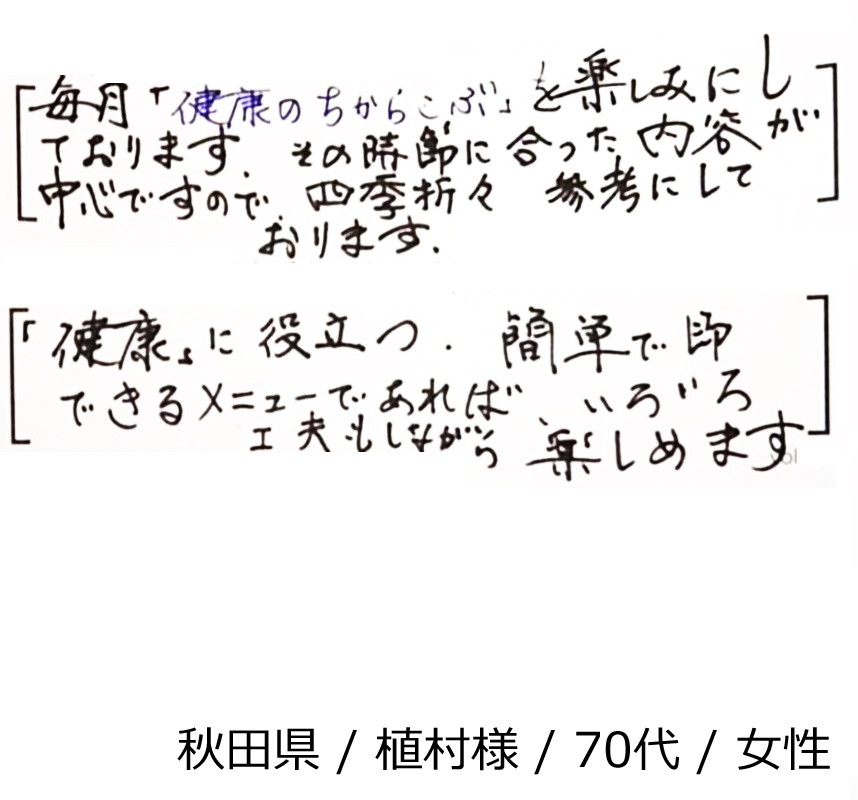 毎月「健康のちからこぶ」を楽しみにし
ております。その時節に合った内容が
中心ですので、四季折々 参考にして
おります。
「健康」に役立つ、簡単で即
できるメニューであれば、いろいろ
工夫もしながら楽しめます
秋田県 / 植村様 / 70代 / 女性